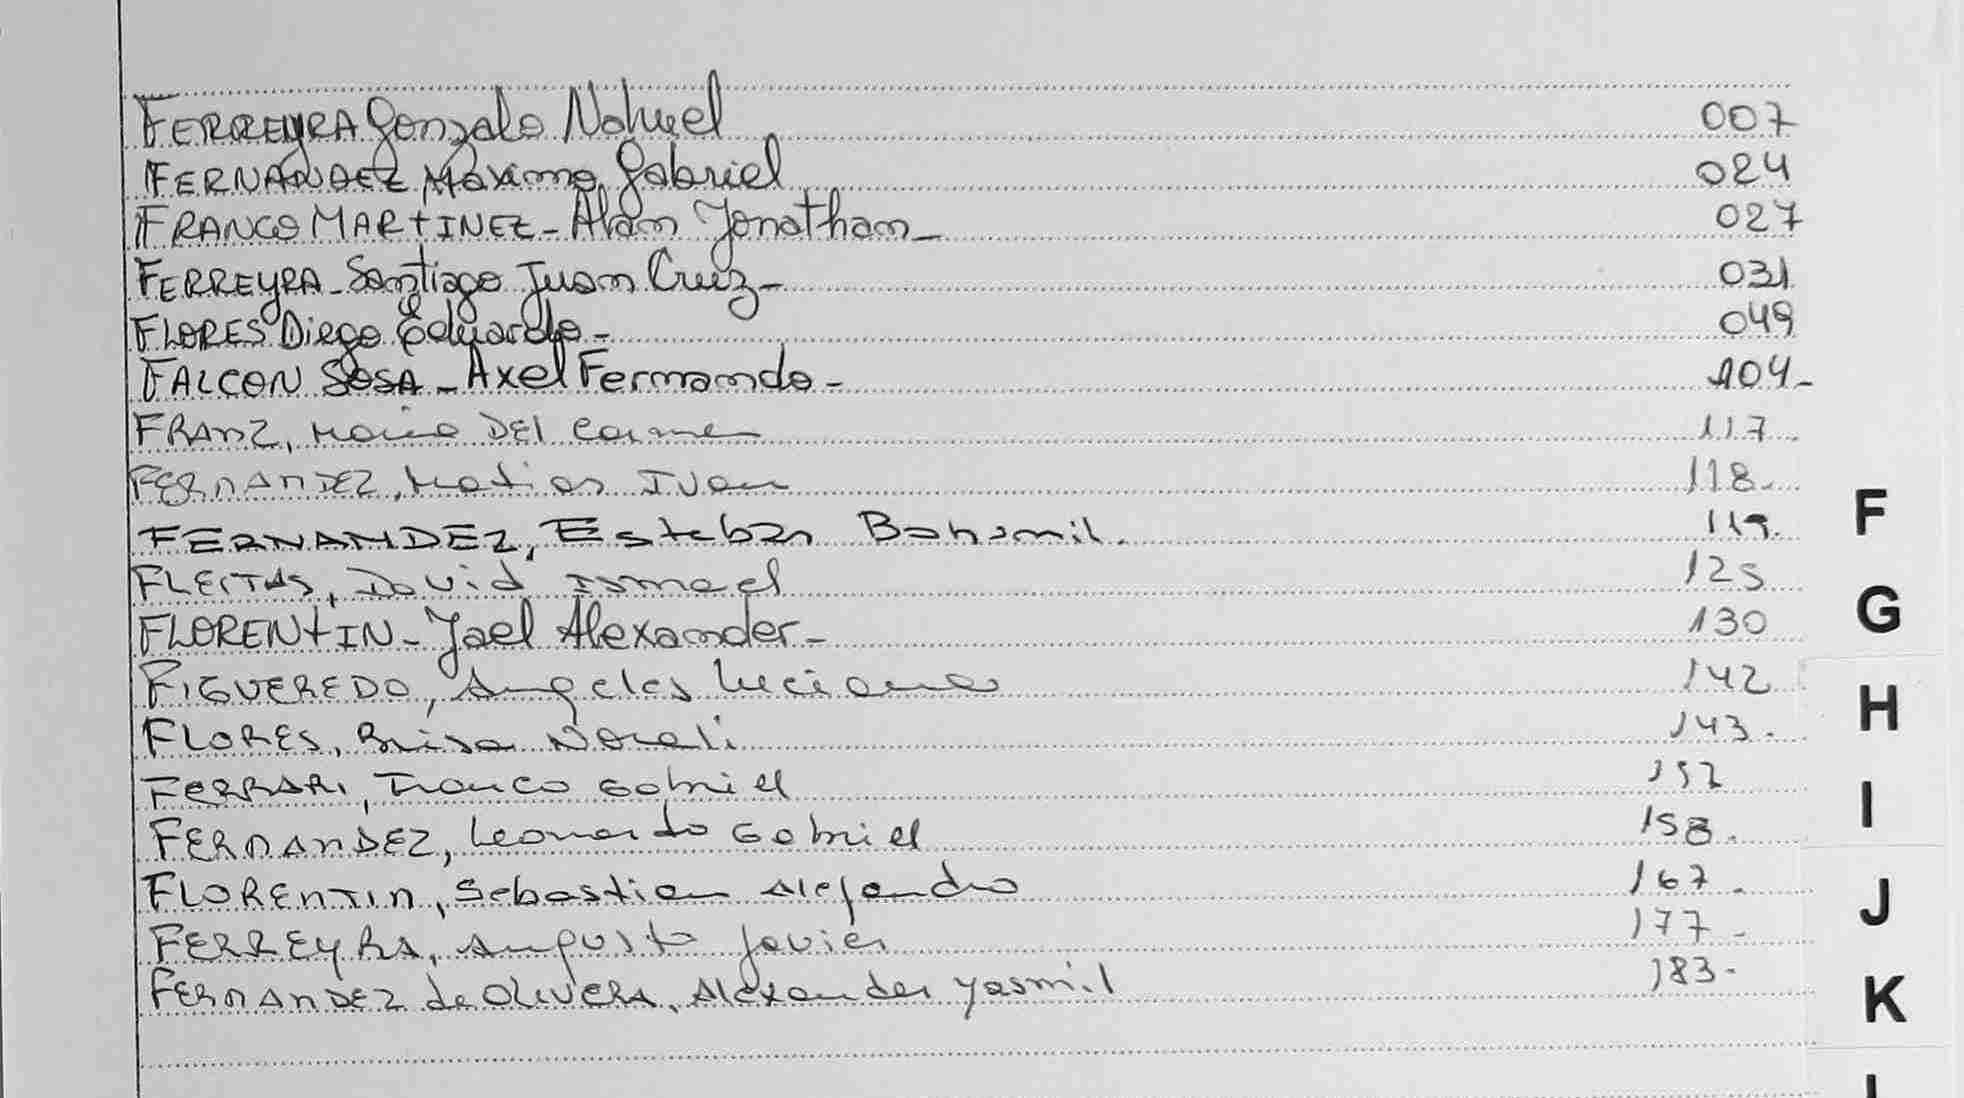 FERREYRA Gonzalo Nahuel 007
FERNANDEZ Máximo Gabriel 024
FRANCO MARTINEZ - Alan Jonathan - 027
FERREYRA - Santiago Juan Cruz - 031
FLORES Diego Eduardo - 049
FALCON SOSA - Axel Fernando - 104 -
FRANZ, Maria DEL Carmen 117
FERNANDEZ, Matias Ivan 118.
FERNANDEZ, Esteban 119.
FLEITAS, David Ismael 125
FLORENTIN - Yael Alexander - 130
FIGUEREDO, Angeles Luciana 142
FLORES, Brisa Nerali 143.
FERRARI, Franco Gabriel 152
FERNANDEZ, Leonardo Gabriel 158.
FLORENTIN, Sebastian Alejandro 167.
FERREYRA, Augusto Javier 177 -
FERNANDEZ de OLIVERA, Alexander Yasmil 183 -
F
G
H
I
J
K